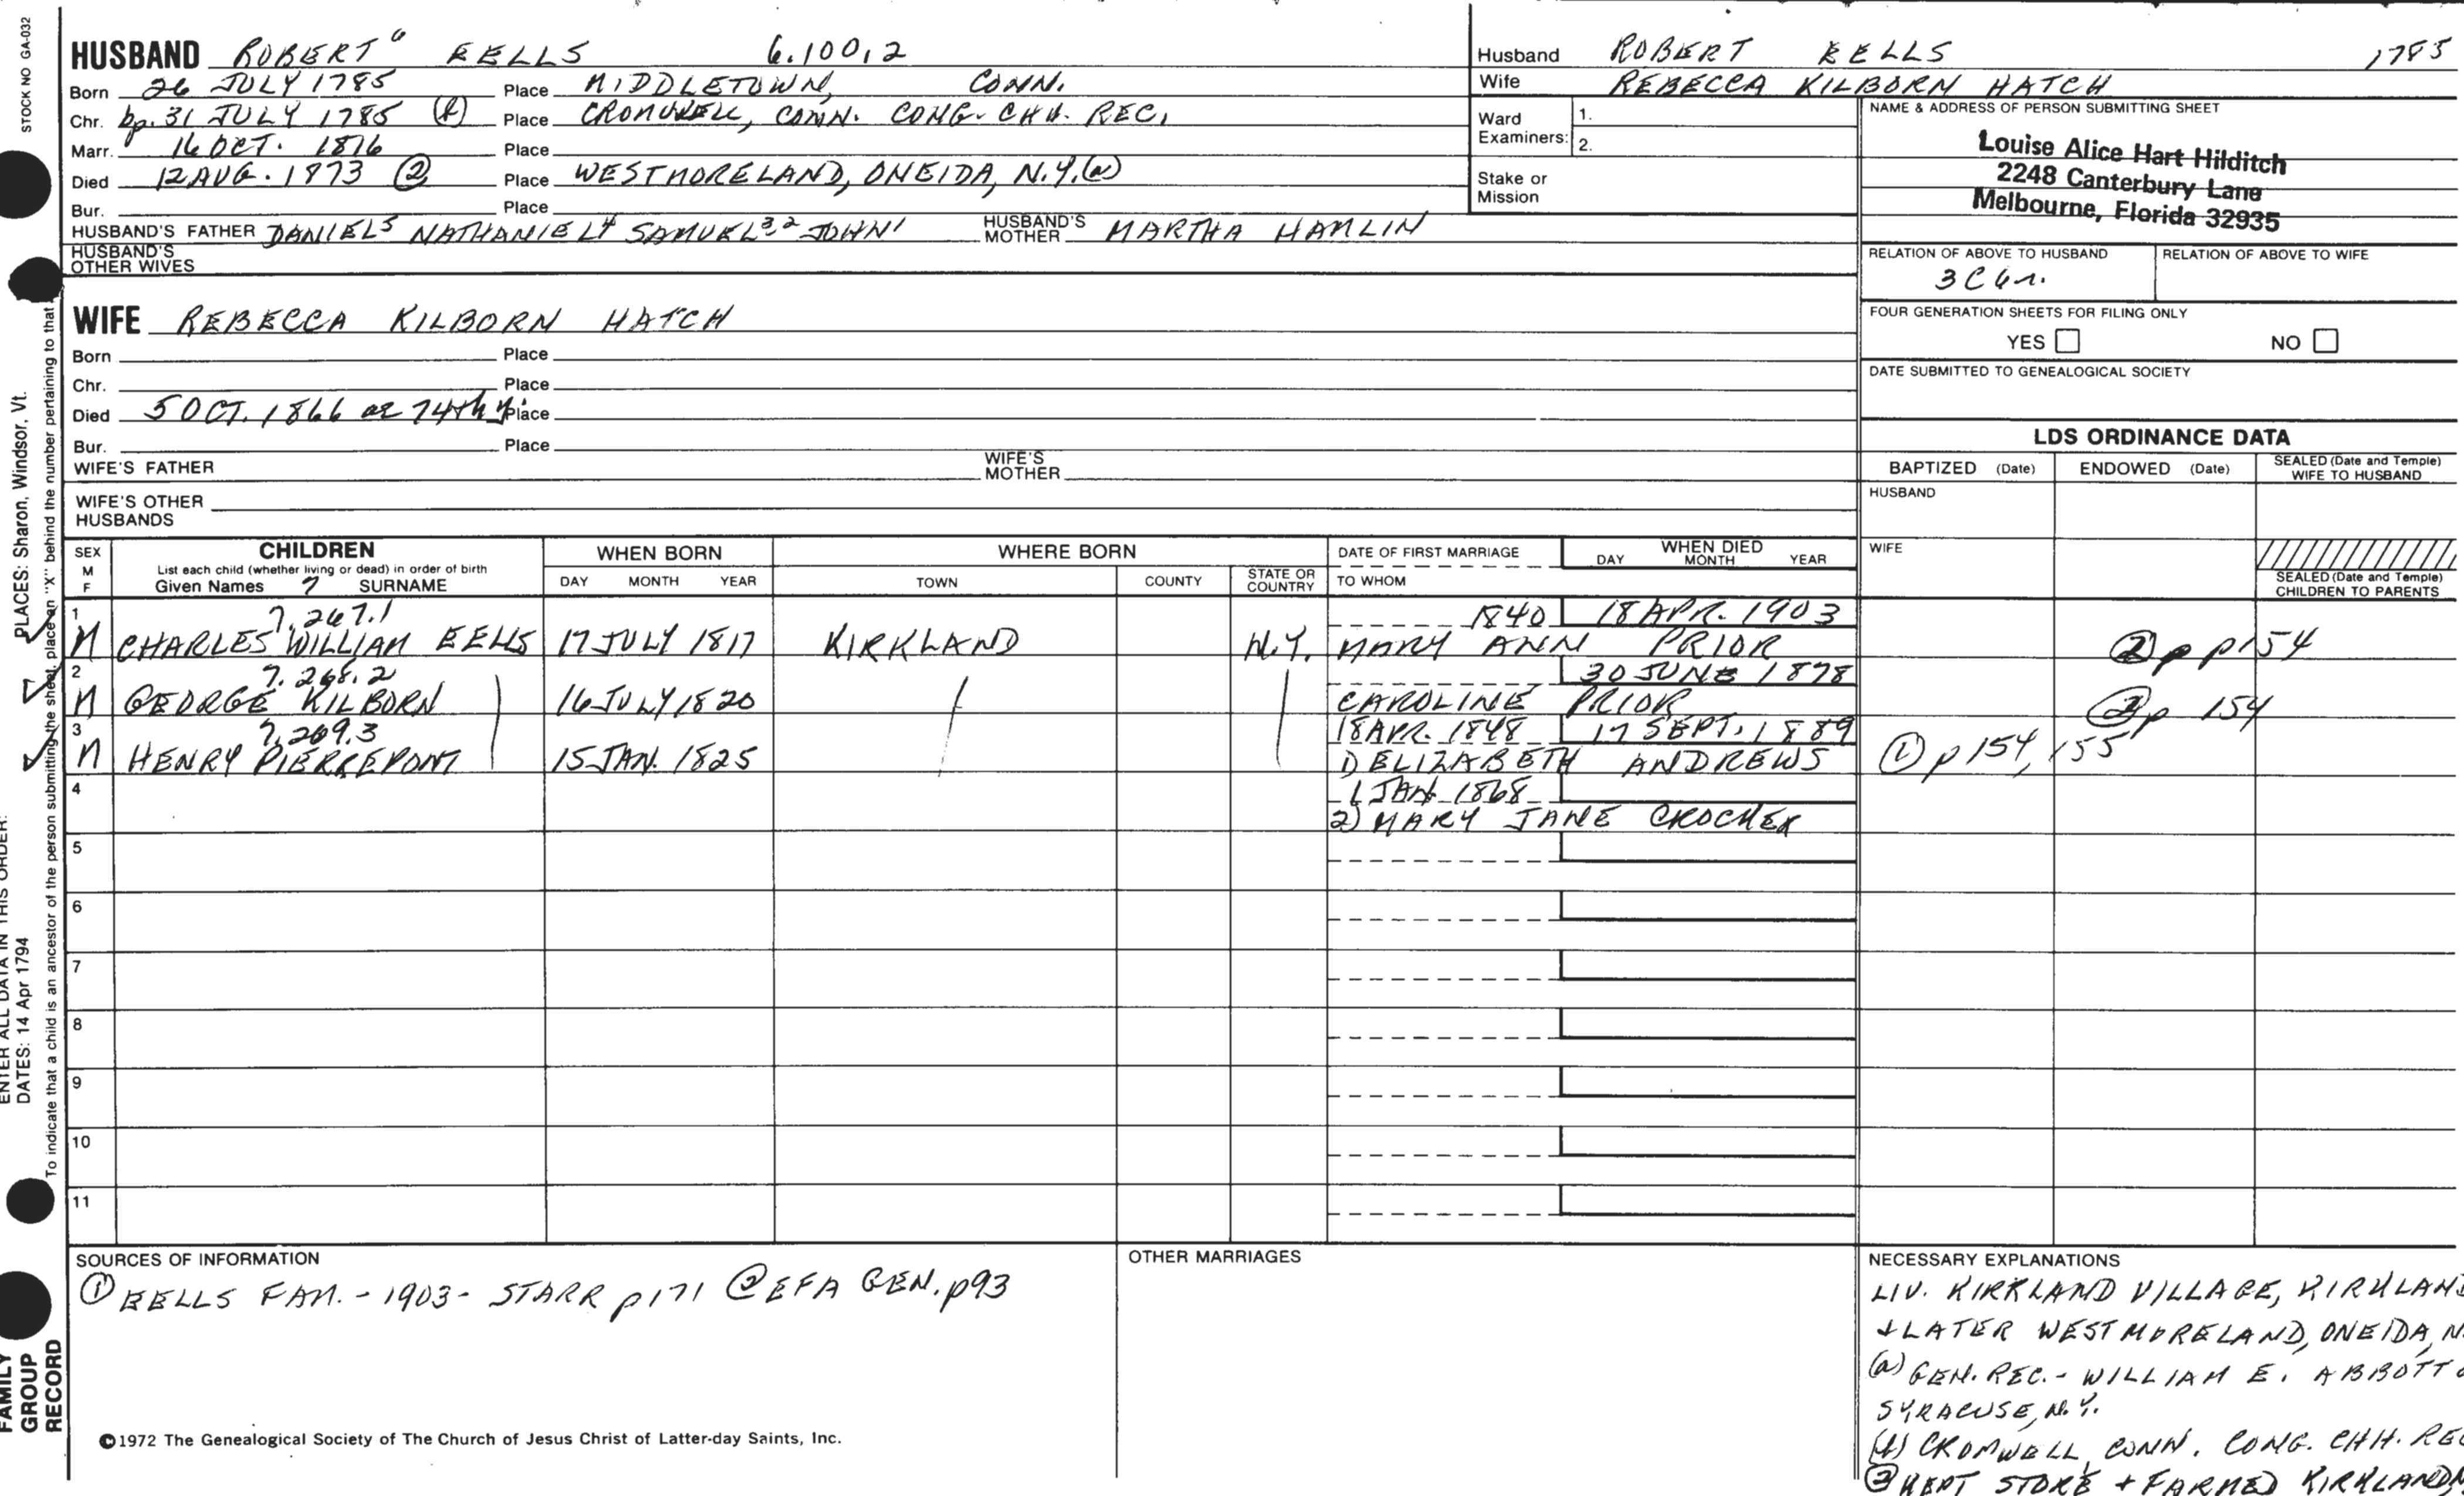 STOCK NO GA-032
HUSBAND ROBERT⁶ EELLS 6.100,2
Born 26 JULY 1785 Place MIDDLETOWN, CONN.
Chr. bp. 31 JULY 1785 Place CROMWELL, CONN. CONG. CHH. REC.
Marr. 16 OCT. 1816 Place
Died 12 AUG. 1873 ② Place WESTMORELAND, ONEIDA, N.Y. (a)
Bur. Place
HUSBAND'S FATHER DANIEL⁵ NATHANIEL⁴ SAMUEL³,² JOHN¹ HUSBAND'S MOTHER MARTHA HAMLIN
HUSBAND'S OTHER WIVES
WIFE REBECCA KILBORN HATCH
Born Place
Chr. Place
Died 5 OCT. 1866 ae 74th y. Place
Bur. Place
WIFE'S FATHER WIFE'S MOTHER
WIFE'S OTHER HUSBANDS
Husband ROBERT EELLS 1785
Wife REBECCA KILBORN HATCH
Ward Examiners: 1.
2.
Stake or Mission
NAME & ADDRESS OF PERSON SUBMITTING SHEET
Louise Alice Hart Hilditch
2248 Canterbury Lane
Melbourne, Florida 32935
RELATION OF ABOVE TO HUSBAND RELATION OF ABOVE TO WIFE
3C 4r.
FOUR GENERATION SHEETS FOR FILING ONLY
YES NO
DATE SUBMITTED TO GENEALOGICAL SOCIETY
LDS ORDINANCE DATA
BAPTIZED (Date) ENDOWED (Date) SEALED (Date and Temple) WIFE TO HUSBAND
HUSBAND
WIFE
SEALED (Date and Temple) CHILDREN TO PARENTS
SEX M F CHILDREN WHEN BORN WHERE BORN DATE OF FIRST MARRIAGE WHEN DIED
List each child (whether living or dead) in order of birth
Given Names 7 SURNAME DAY MONTH YEAR TOWN COUNTY STATE OR COUNTRY TO WHOM DAY MONTH YEAR
1 7,267.1 1840 18 APR. 1903
M CHARLES WILLIAM EELLS 17 JULY 1817 KIRKLAND N.Y. MARY ANN PRIOR ② p p154
2 7.268.2 30 JUNE 1878
M GEORGE KILBORN 16 JULY 1820 CAROLINE PRIOR ② p 154
3 7,269.3 18 APR. 1848 17 SEPT. 1889
M HENRY PIERREPONT 15 JAN. 1825 1) ELIZABETH ANDREWS ① p154, 155
4 1 JAN 1868
2) MARY JANE CROCKER
5
6
7
8
9
10
11
SOURCES OF INFORMATION
① EELLS FAM. - 1903 - STARR p171 ② EFA GEN. p93
OTHER MARRIAGES
NECESSARY EXPLANATIONS
LIV. KIRKLAND VILLAGE, KIRKLAND
+ LATER WESTMORELAND, ONEIDA, N
(a) GEN. REC. - WILLIAM E. ABBOTT
SYRACUSE, N.Y.
CROMWELL, CONN. CONG. CHH. REC
② KEPT STORE + FARMED KIRKLAND,
©1972 The Genealogical Society of The Church of Jesus Christ of Latter-day Saints, Inc.
FAMILY GROUP RECORD
ENTER ALL DATA IN THIS ORDER:
DATES: 14 Apr 1794 PLACES: Sharon, Windsor, Vt.
To indicate that a child is an ancestor of the person submitting the sheet, place an "X" behind the number pertaining to that